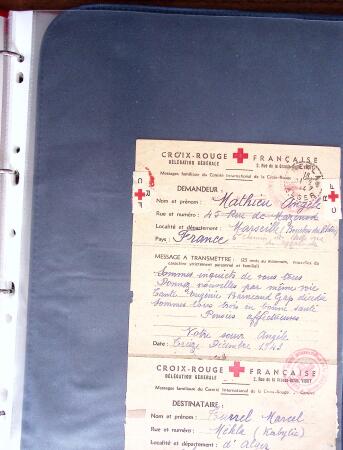 CROIX-ROUGE FRANÇAISE
DÉLÉGATION GÉNÉRALE
Messages familiaux du Comité International de la Croix-Rouge
DEMANDEUR :
Nom et prénom : Mathieu Angèle
Rue et numéro : 45 Rue de
Localité et département : Marseille
Pays : France
MESSAGE A TRANSMETTRE : (25 mots au maximum, nouvelles de
caractère strictement personnel et familial)
Sommes inquiets de vous tous
Donnez nouvelles par même voie
Tante Eugénie Gap
Sommes tous trois en bonne santé
affectueuses
Votre soeur Angèle
Date : Treize Décembre 1943
CROIX-ROUGE FRANÇAISE
DÉLÉGATION GÉNÉRALE
Messages familiaux du Comité International de la Croix-Rouge
DESTINATAIRE :
Nom et prénom : Marcel
Rue et numéro : Mekla (Kabylie)
Localité et département : d'Alger